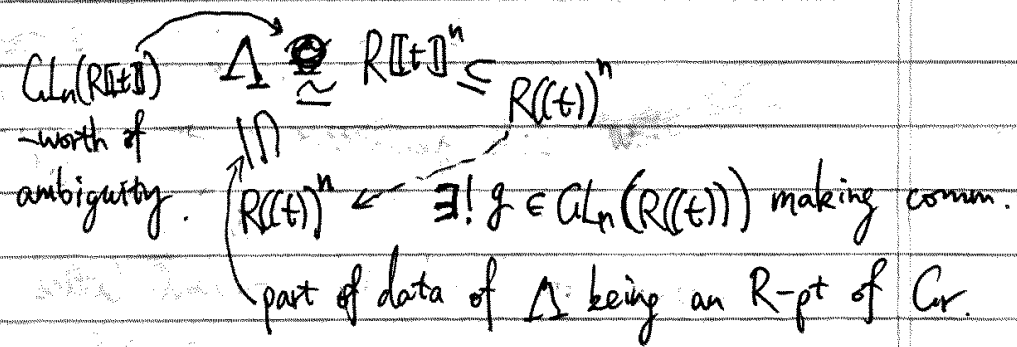 GLn(R[[t]]) Λ ≃ R[[t]]^n ⊆ R((t))^n
-worth of
ambiguity. R((t))^n ∃! g ∈ GLn(R((t))) making comm.
part of data of Λ being an R-pt of Gr.